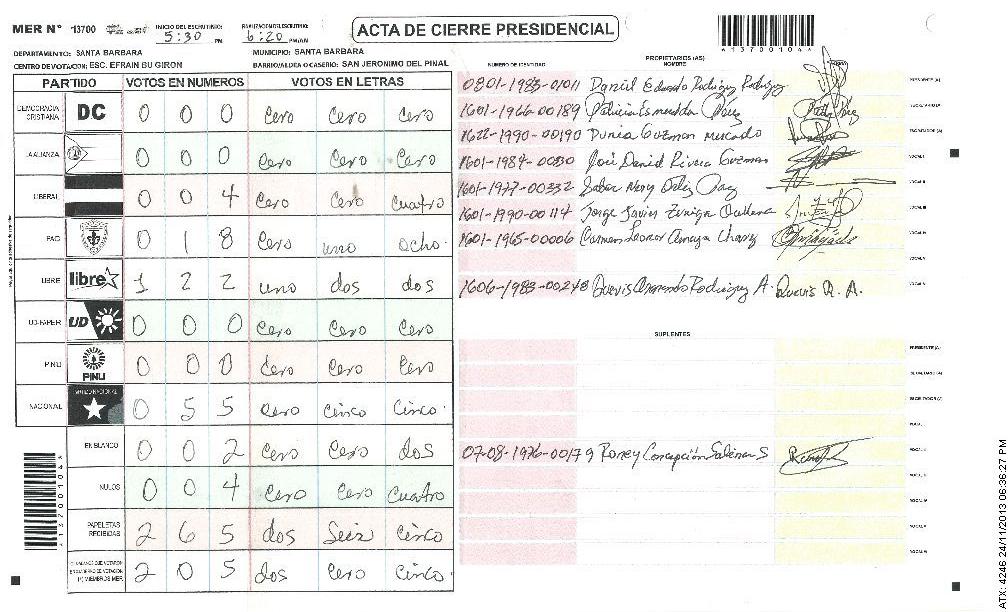 MER Nº 13700 INICIO DEL ESCRUTINIO: 5:30 PM FINALIZACION DEL ESCRUTINIO: 6:20 PM/AM ACTA DE CIERRE PRESIDENCIAL
*13700104*
DEPARTAMENTO: SANTA BARBARA MUNICIPIO: SANTA BARBARA
CENTRO DE VOTACION: ESC. EFRAIN BU GIRON BARRIO/ALDEA O CASERIO: SAN JERONIMO DEL PINAL
PARTIDO VOTOS EN NUMEROS VOTOS EN LETRAS
DEMOCRACIA CRISTIANA DC 0 0 0 Cero Cero Cero
LA ALIANZA 0 0 0 Cero Cero Cero
LIBERAL 0 0 4 Cero Cero Cuatro
PAC 0 1 8 Cero uno ocho
LIBRE libre 1 2 2 uno dos dos
UD-FAPER UD 0 0 0 Cero Cero Cero
PINU PINU 0 0 0 Cero Cero Cero
NACIONAL 0 5 5 Cero Cinco Cinco
EN BLANCO 0 0 2 Cero Cero dos
NULOS 0 0 4 Cero Cero Cuatro
PAPELETAS RECIBIDAS 2 6 5 dos Seis Cinco
2 0 5 dos Cero Cinco
*13700104*
PROPIETARIOS (AS)
NUMERO DE IDENTIDAD NOMBRE FIRMA
0801-1983-01011 Daniel Eduardo Rodriguez Rodriguez PRESIDENTE (A)
1601-1966-00189 Patricia Esmeralda Pérez SECRETARIO (A)
1622-1990-00190 Dunia Guzman Mercado ESCRUTADOR (A)
1601-1984- José Daniel Rivera Guzman VOCAL I
1601-1977-00332 Nery Ortiz Paz VOCAL II
1601-1990-00114 Jorge Javier Zuniga Orellana VOCAL III
1601-1965-00006 Carmen Leonor Amaya Chavez VOCAL IV
VOCAL V
1606-1983-00248 Armando Rodriguez A.
SUPLENTES
PRESIDENTE (A)
SECRETARIO (A)
ESCRUTADOR (A)
VOCAL I
07-08-1976-00179 Roney Concepción Salinas S VOCAL II
VOCAL III
VOCAL IV
VOCAL V
ATX: 4246 24/11/2013 06:36:27 PM